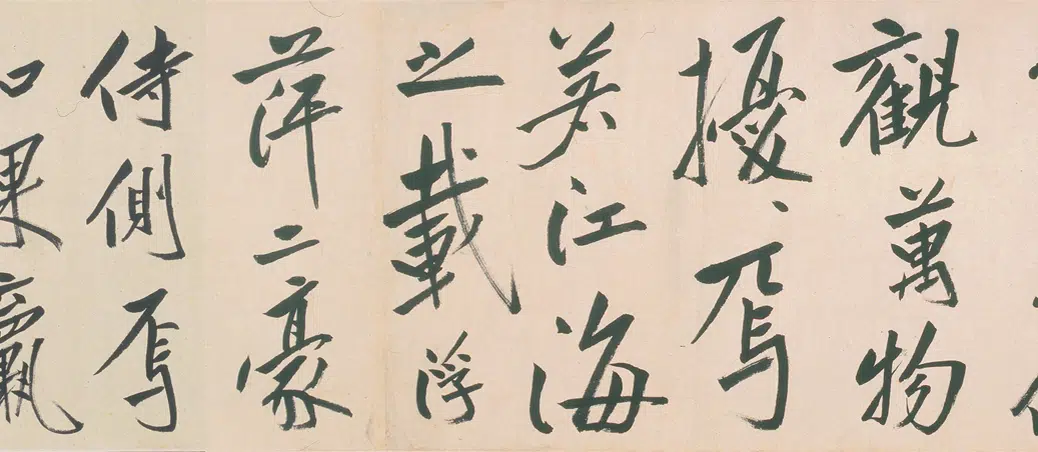 觀萬物
擾、焉
若江海
之載浮
萍二豪
侍側焉
如果蠃